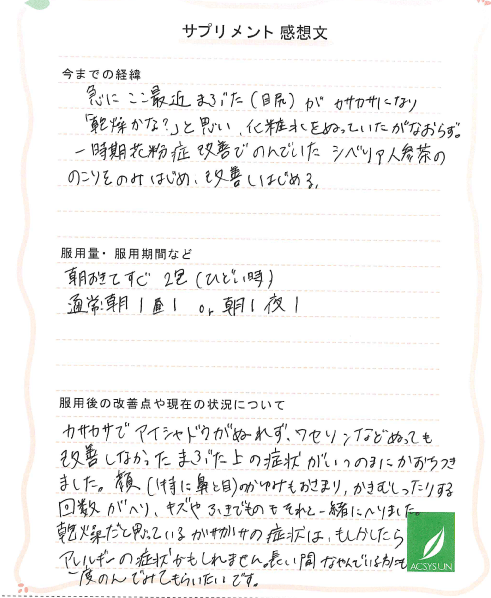 サプリメント 感想文
今までの経緯
急に ここ最近 まぶた(目尻)が カサカサになり
「乾燥かな?」と思い、化粧水をぬっていたがなおらず。
一時期花粉症 改善でのんでいた シベリア人参茶の
のこりをのみはじめ、改善しはじめる。
服用量・服用期間など
朝おきてすぐ 2包(ひどい時)
通常朝1昼1 or 朝1夜1
服用後の改善点や現在の状況について
カサカサで アイシャドウがぬれず、ワセリンなどぬっても
改善しなかった まぶた上の症状 がいつのまにかおちつき
ました。顔、(特に鼻と目)のかゆみもおさまり、かきむしったりする
回数 がへり、キズや ふきでものも それと一緒にへりました。
乾燥だと思っている カサカサの症状は、もしかしたら
アレルギーの症状かもしれません。長い間なやんでいる方にも
一度のんでみてもらいたいです。
ACSYSUN